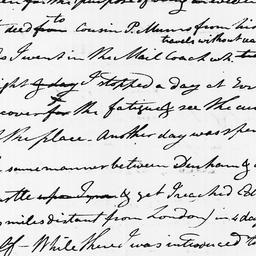 to
t deed from cousin P. Munro from his
travels without va
I went in the Mail Coach wh.
ight & day I stopped a day at
cover for the fatigue & see the cu
the place. Another day was spen
same manner between Durham &
& yet I reached Ed
miles distant from London) in 4 day
lf - While there I was introduced to